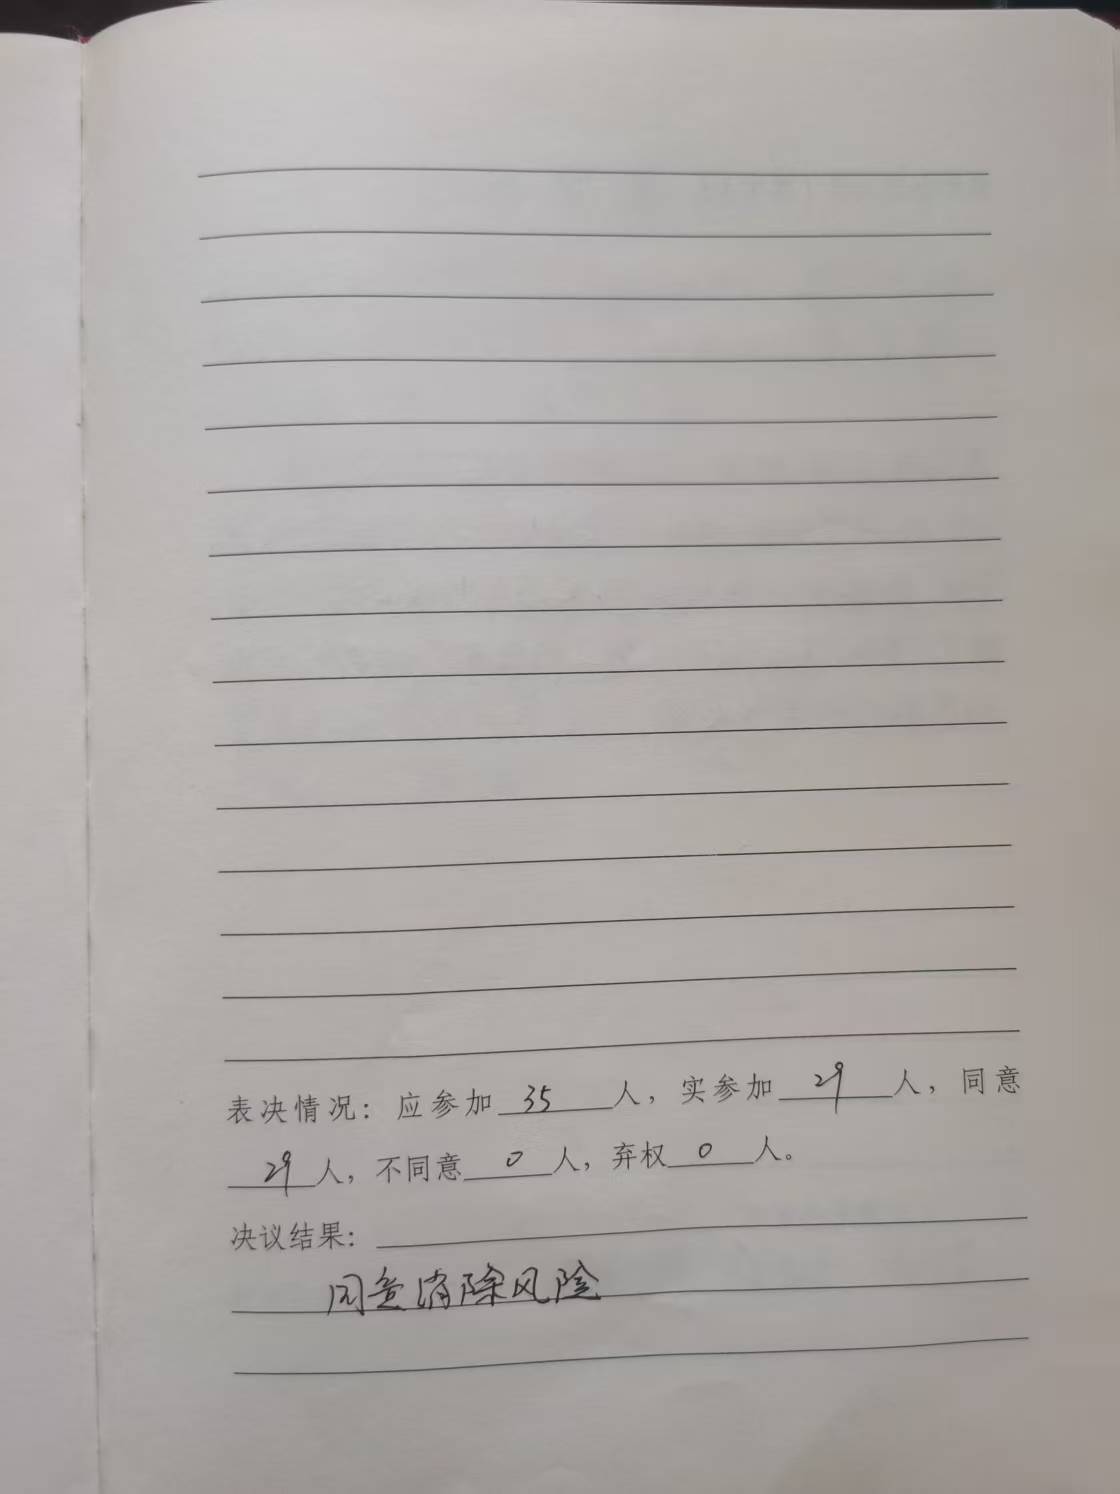 表决情况：应参加 35 人，实参加 29 人，同意
29 人，不同意 0 人，弃权 0 人。
决议结果：
同意消除风险